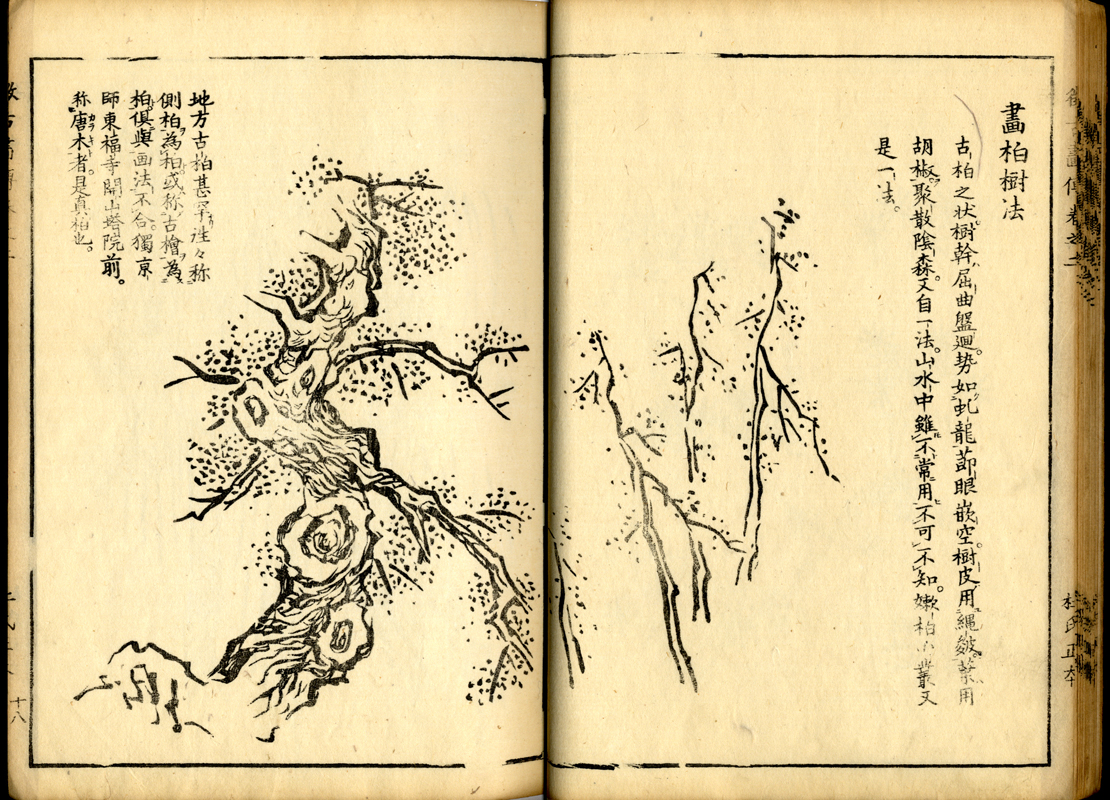 畫柏樹法
古柏之状樹幹屈曲盤迴勢如虬龍莭眼嵌空樹皮用縄皴葉用
胡椒聚散陰森又自一法山水中雖不常用不可不知嫩柏小叢又
是一法
地方古柏甚罕徃々称
側柏為柏或称古檜為
柏俱與画法不合獨京
師東福寺開山塔院前
称唐木者是真柏也
カラキ
十八